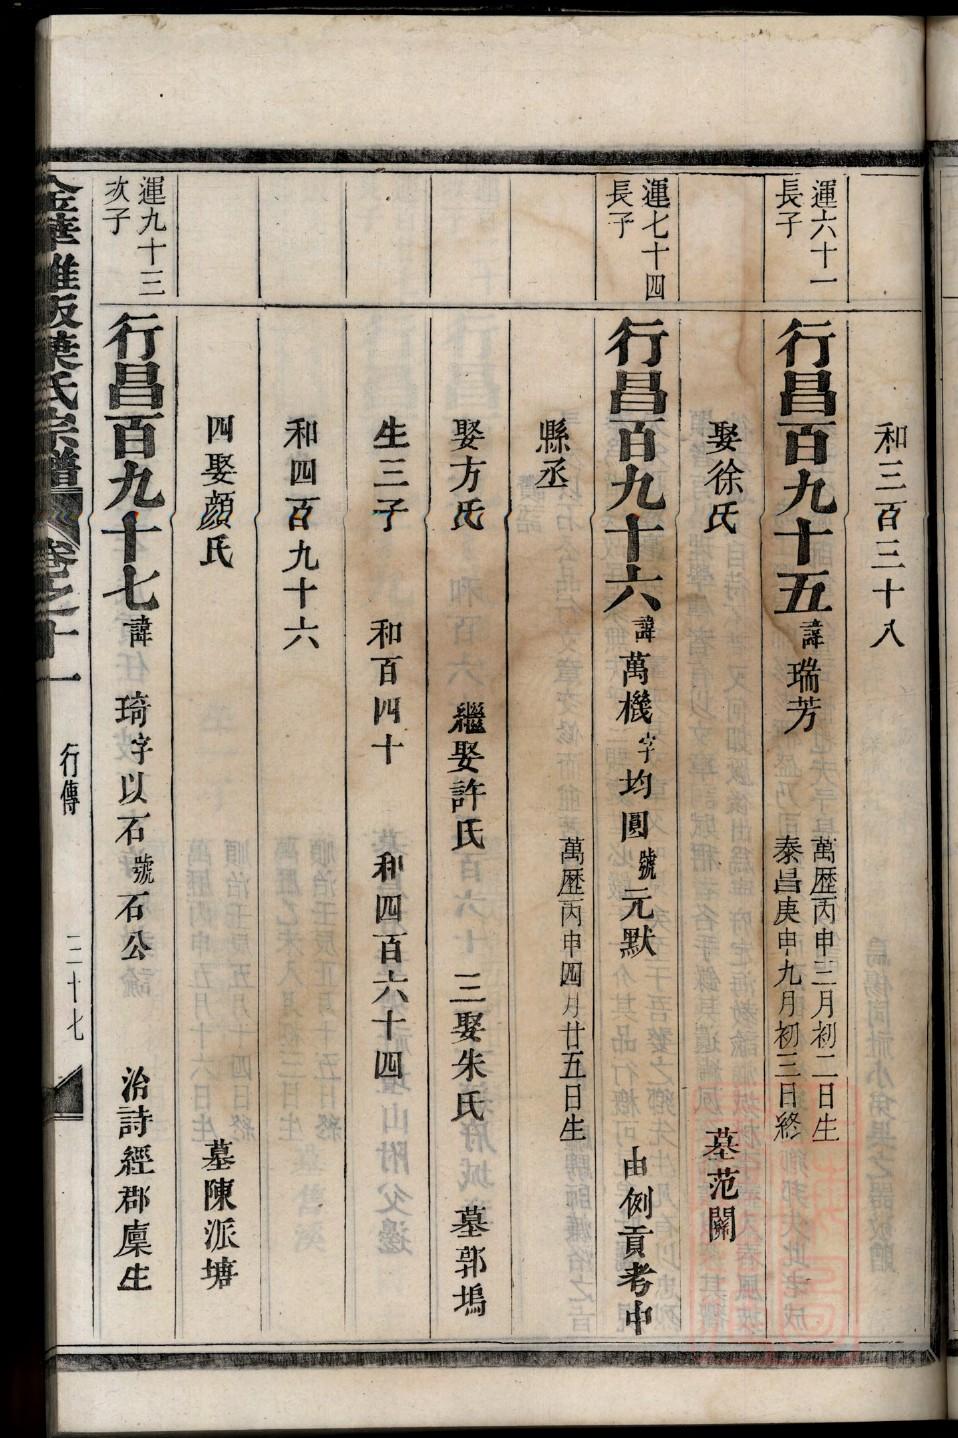 和三百三十八
運六十一
長子
行昌百九十五 諱瑞芳
萬歷丙申三月初二日生
泰昌庚申九月初三日終
娶徐氏 墓范關
運七十四
長子
行昌百九十六 諱萬機字均圓號元默 由例貢考中
縣丞 萬歷丙申四月廿五日生
娶方氏 繼娶許氏 三娶朱氏 墓郭塢
生三子 和百四十 和四百六十四
和四百九十六
四娶顏氏 墓陳派塘
運九十三
次子
行昌百九十七 諱琦字以石號石公 治詩經郡廩生
金華雅畈葉氏宗譜 卷之十一 行傳 三十七